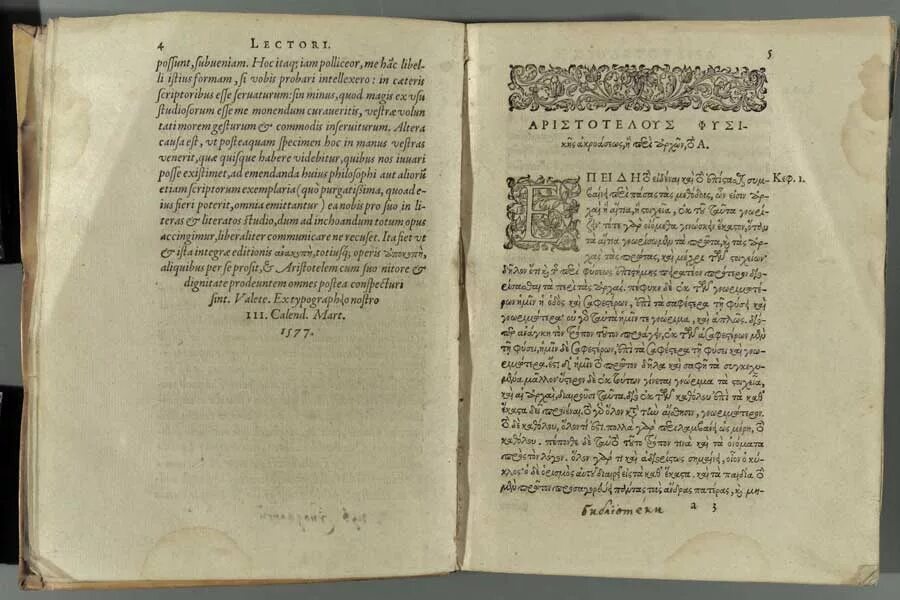 4 LECTORI.
possunt, subueniam. Hoc itaq; iam polliceor, me hãc libel-
li istius formam, si vobis probari intellexero: in cæteris
scriptoribus esse seruaturum: sin minus, quod magis ex vsu
studiosorum esse me monendum curaueritis, vestræ volun
tati morem gesturum & commodis inseruiturum. Altera
causa est, vt posteaquam specimen hoc in manus vestras
venerit, quæ quisque habere videbitur, quibus nos iuuari
posse existimet, ad emendanda huius philosophi aut aliorũ
etiam scriptorum exemplaria (quò purgatissima, quoad e-
ius fieri poterit, omnia emittantur) ea nobis pro suo in li-
teras & literatos studio, dum ad inchoandum totum opus
accingimur, liberaliter communicare ne recuset. Ita fiet vt
& ista integræ editionis ἀνακοπὴ, totiusq; operis ὑποκοπὴ,
aliquibus per se prosit, & Aristotelem cum suo nitore &
dignitate prodeuntem omnes postea conspecturi
sint. Valete. Ex typographıo nostro
III. Calend. Mart.
1577.
5
ΑΡΙΣΤΟΤΕΛΟΥΣ ΦΥΣΙ-
κῆς ἀκροάσεως, ἢ περὶ ἀρχῶν, τὸ Α.
ΕΠΕΙΔΗ τὸ εἰδέναι καὶ τὸ ἐπίστασθαι συμ- Κεφ. 1.
βαίνει περὶ πάσας τὰς μεθόδους, ὧν εἰσὶν ἀρ-
χαὶ ἢ αἴτια, ἢ στοιχεῖα, ἐκ τοῦ ταῦτα γνωρί-
ζειν· τότε γὰρ οἰόμεθα γινώσκειν ἕκαστον, ὅταν
τὰ αἴτια γνωρίσωμεν τὰ πρῶτα, ἢ τὰς ἀρ-
χὰς τὰς πρώτας, καὶ μέχρι τῶν στοιχείων·
δῆλον ὅτι καὶ τῆς περὶ φύσεως ἐπιστήμης πειρατέον πρότερον διο-
ρίσασθαι τὰ περὶ τὰς ἀρχάς. πέφυκε δὲ ἐκ τῶν γνωριμωτέ-
ρων ἡμῖν ἡ ὁδὸς καὶ σαφεστέρων, ἐπὶ τὰ σαφέστερα τῇ φύσει καὶ
γνωριμώτερα· οὐ γὰρ ταῦτὰ ἡμῖν τε γνώριμα, καὶ ἁπλῶς. διό-
περ ἀνάγκη τὸν τρόπον τοῦτον προάγειν, ἐκ τῶν ἀσαφεστέρων μὲν
τῇ φύσει, ἡμῖν δὲ σαφεστέρων, ἐπὶ τὰ σαφέστερα τῇ φύσει καὶ γνω-
ριμώτερα. ἔστι δʼ ἡμῖν τὸ πρῶτον δῆλα καὶ σαφῆ τὰ συγκεχυ-
μένα μᾶλλον· ὕστερον δὲ ἐκ τούτων γίνεται γνώριμα τὰ στοιχεῖα,
καὶ αἱ ἀρχαὶ, διαιροῦσι ταῦτα. διὸ ἐκ τῶν καθόλου ἐπὶ τὰ καθʼ
ἕκαστα δεῖ προϊέναι. τὸ γὰρ ὅλον κατὰ τὴν αἴσθησιν, γνωριμώτερον.
τὸ δὲ καθόλου, ὅλον τί ἐστι. πολλὰ γὰρ περιλαμβάνει ὡς μέρη, τὸ
καθόλου. πέπονθε δὲ ταὐτὸ τοῦτο τρόπον τινὰ καὶ τὰ ὀνόματα
πρὸς τὸν λόγον. ὅλον γάρ τι καὶ ἀδιορίστως σημαίνει, οἷον ὁ κύ-
κλος· ὁ δὲ ὁρισμὸς αὐτοῦ διαιρεῖ εἰς τὰ καθʼ ἕκαστα. καὶ τὰ παιδία τὸ
μὲν πρῶτον προσαγορεύει πάντας τοὺς ἄνδρας πατέρας, καὶ μη-
библіотеки a 3